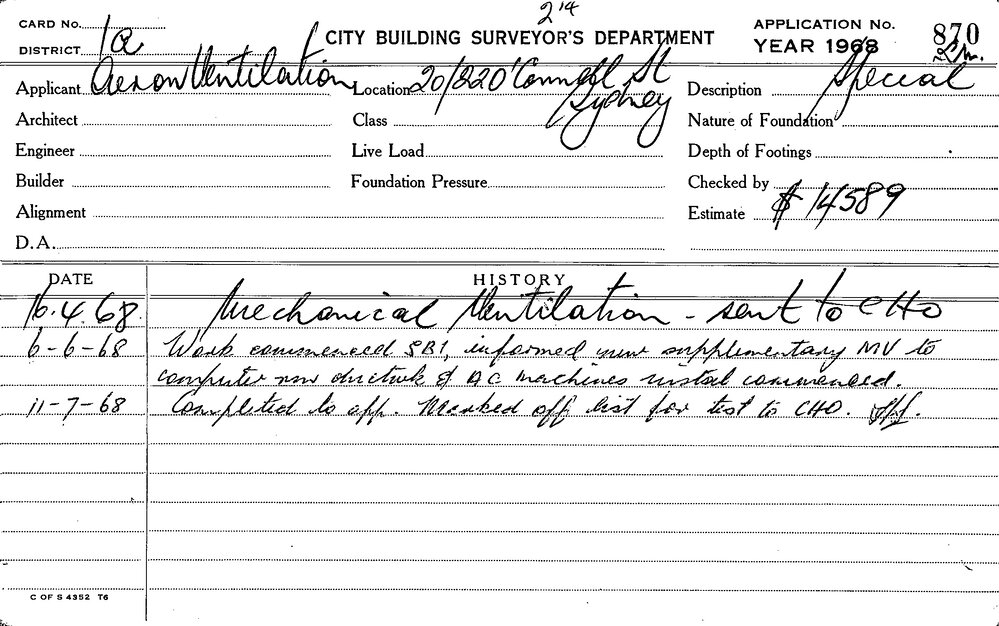 2 14
CARD No.
DISTRICT 1a
CITY BUILDING SURVEYOR'S DEPARTMENT
APPLICATION No. 870
YEAR 1968
Applicant Aeron Ventilation
Location 20/22 O'Connell St
Sydney
Description Special
Architect
Class
Nature of Foundation
Engineer
Live Load
Depth of Footings
Builder
Foundation Pressure
Checked by
Alignment
Estimate $ 14589
D.A.
DATE HISTORY
16.4.68. Mechanical Ventilation - sent to CHO
6-6-68 Work commenced SB1, informed new supplementary MV to
computer rm ductwk & AC machines instal commenced.
11-7-68 Completed to app. Marked off list for test to CHO.
C OF S 4352 T6